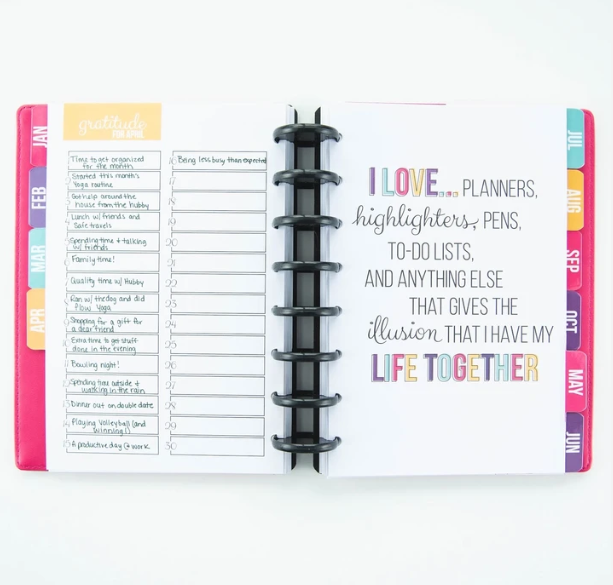 gratitude
FOR APRIL
Time to get organized
for the month
Started this month's
Yoga routine
Got help around the
house from the hubby
Lunch w/ friends and
Safe travels
Spending time + talking
w/ friends
Family time!
Quality time w/ Hubby
Ran w/ the dog and did
Plow Yoga
Shopping for a gift for
a dear friend
Extra time to get stuff
done in the evening
Bowling night!
Spending time outside +
walking in the rain
Dinner out on double date
Playing Volleyball (and
winning!)
A productive day @ work
16 Being less busy than expected
17
18
19
20
21
22
23
24
25
26
27
28
29
30
JAN
FEB
MAR
APR
I LOVE... PLANNERS,
highlighters, PENS,
TO-DO LISTS,
AND ANYTHING ELSE
THAT GIVES THE
illusion THAT I HAVE MY
LIFE TOGETHER
JUL
AUG
SEP
OCT
MAY
JUN